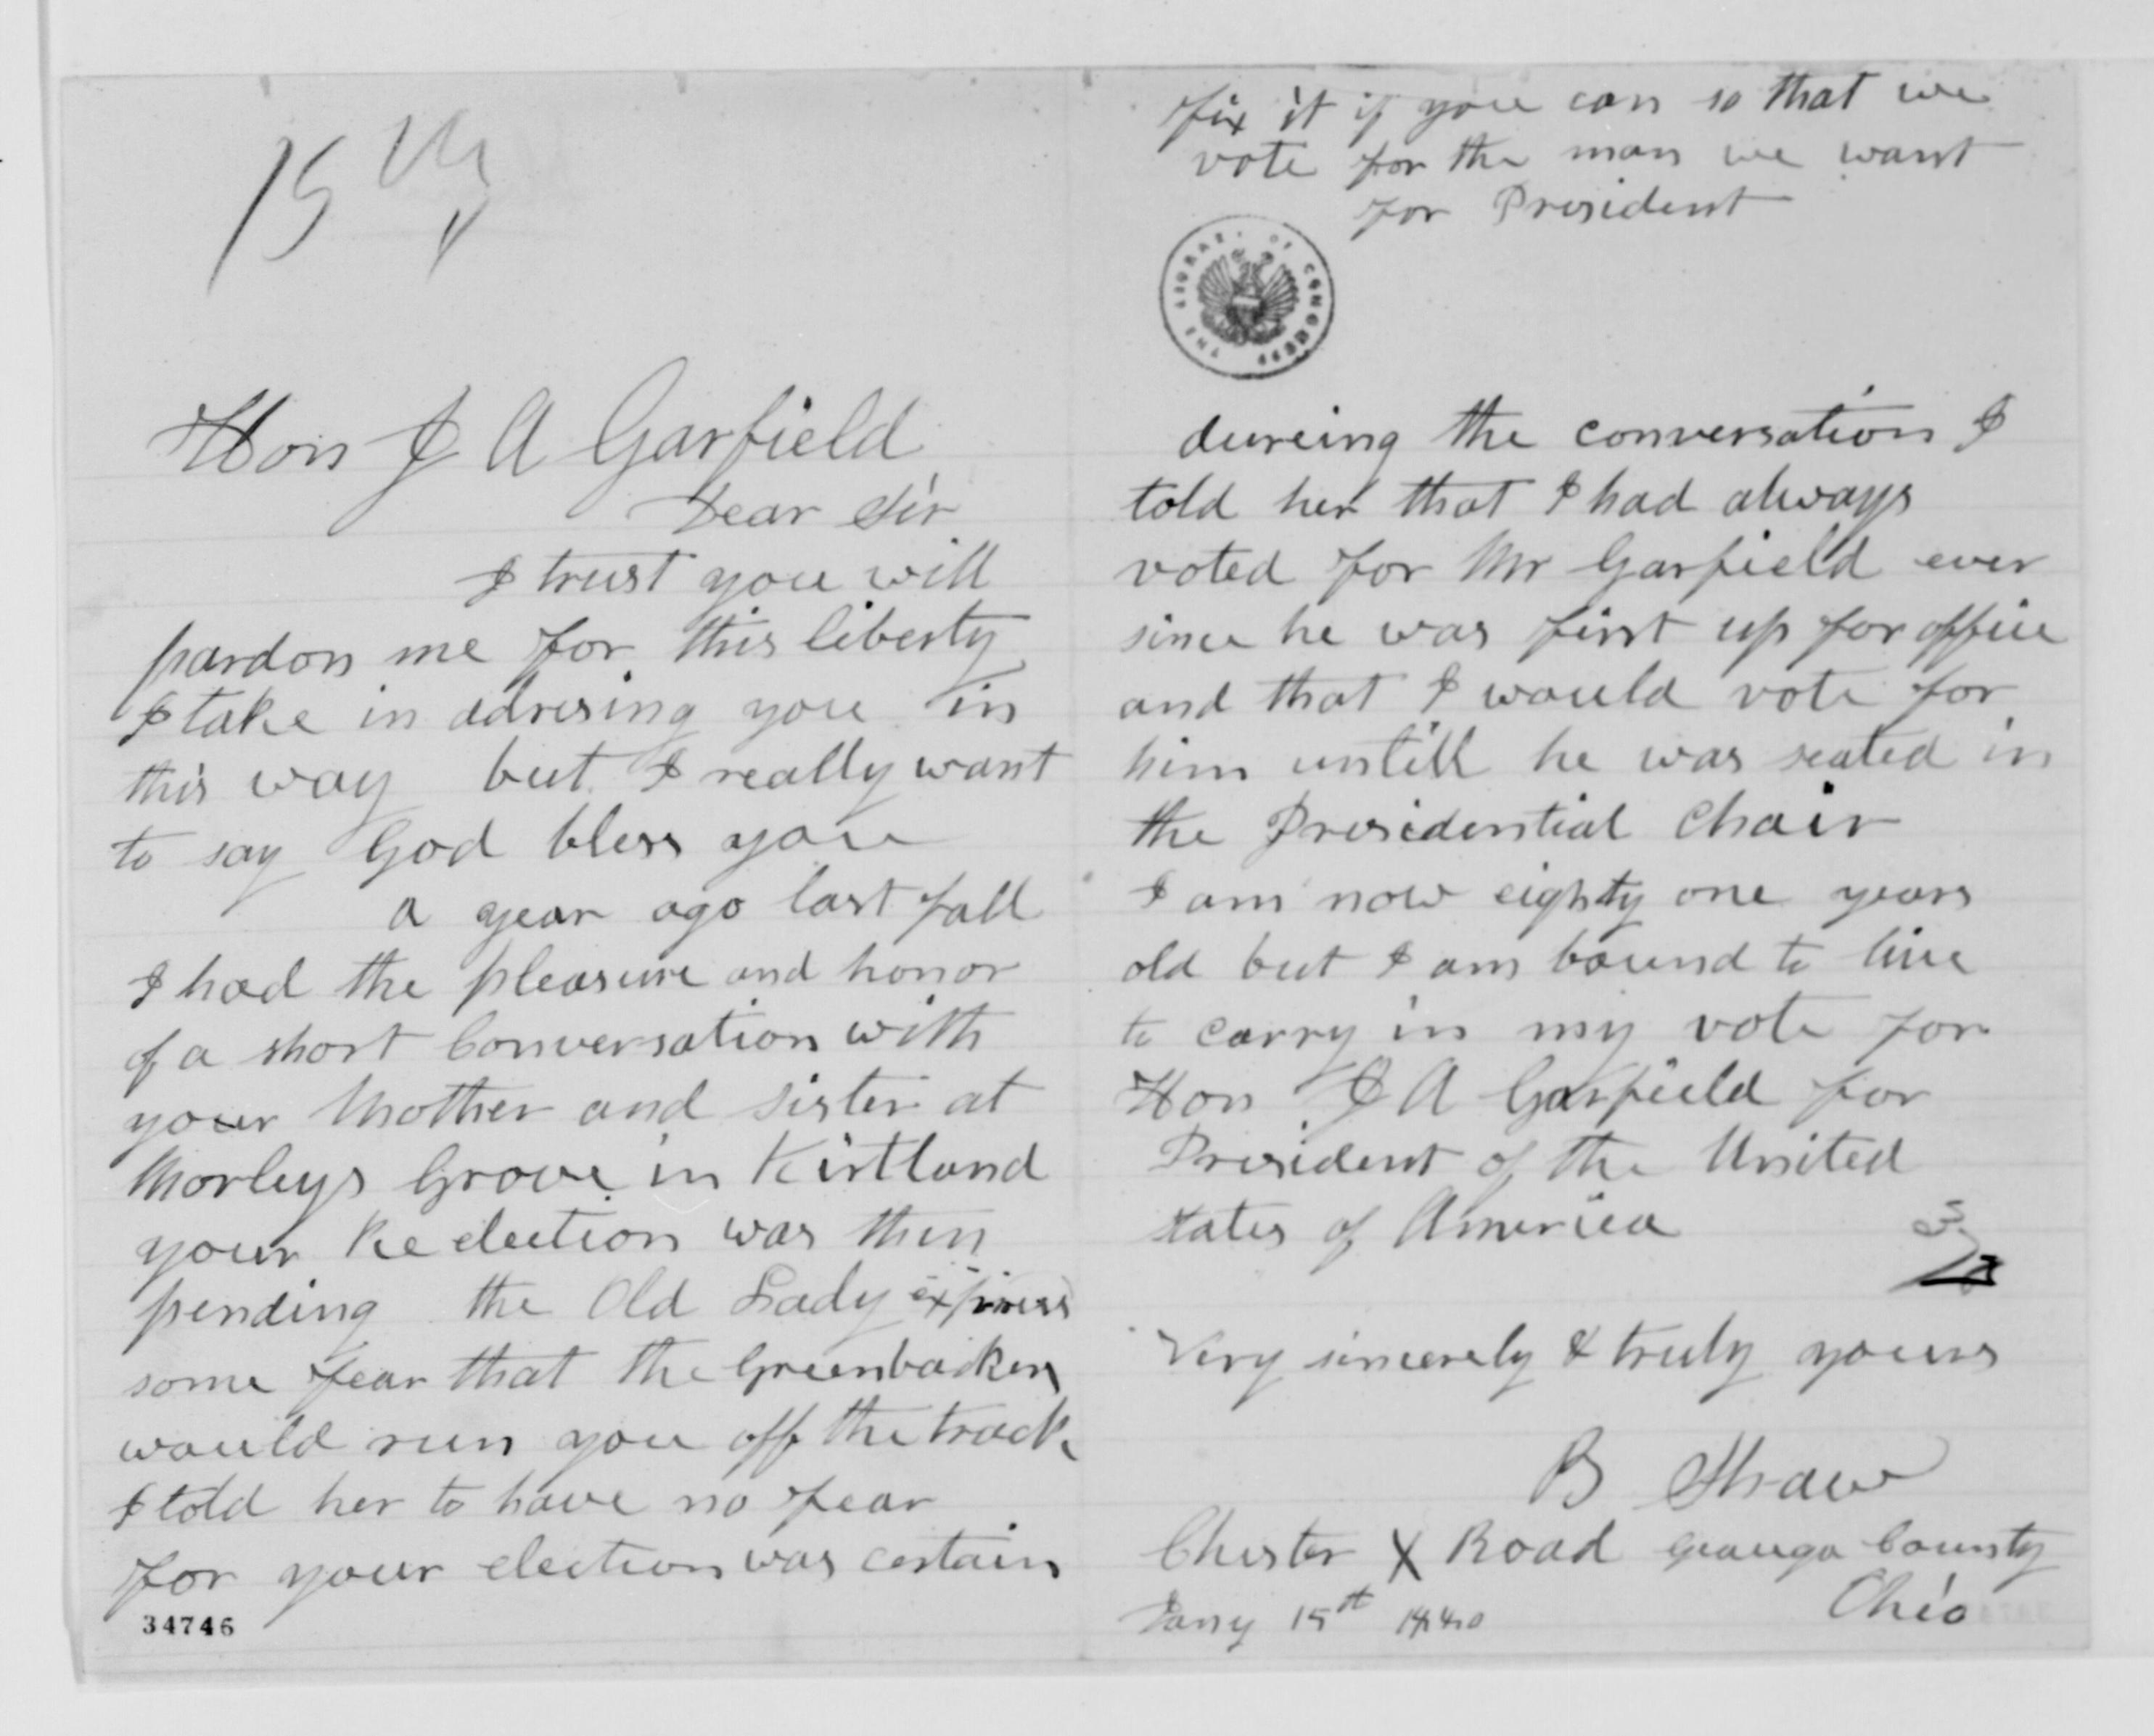 15th
Hon J A Garfield
Dear Sir
I trust you will
pardon me for this liberty
I take in adresing you in
this way but I really want
to say God bless you
a year ago last fall
I had the pleasure and honor
of a short Conversation with
your Mother and sister at
Morleys Grove in Kirtland
your Re election was then
pending the Old Lady express
some fear that the Greenbackers
would run you off the track
I told her to have no fear
for your election was certain
34746
fix it if you can so that we
vote for the man we want
for President
THE LIBRARY OF CONGRESS
dureing the conversation I
told her that I had always
voted for Mr Garfield ever
since he was first up for office
and that I would vote for
him untill he was seated in
the Presidential Chair
I am now eighty one years
old but I am bound to live
to carry in my vote for
Hon J A Garfield for
President of the United
states of America
Very sincerely & truly yours
B Shaw
Chester X Road Geauga County
Ohio
Jany 15th